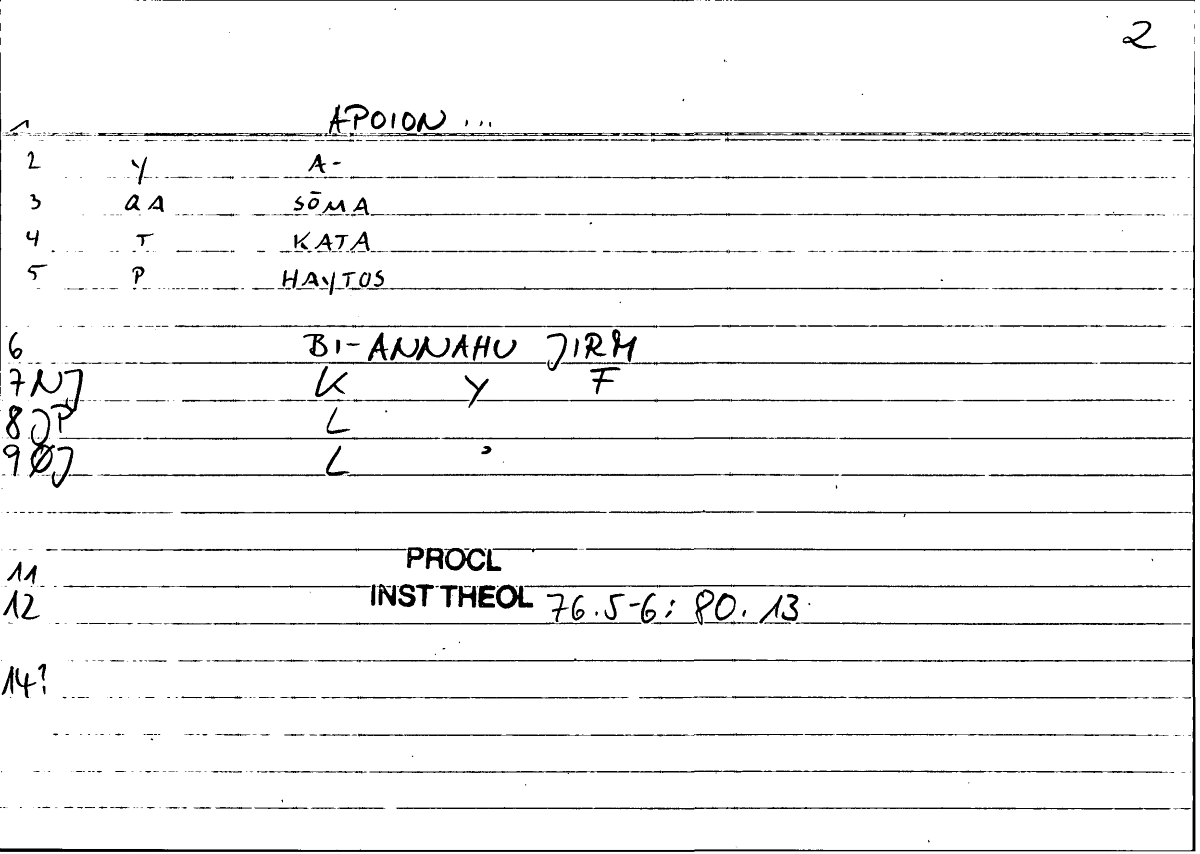 2
1 APOION ...
2 Y A-
3 QA SŌMA
4 T KATA
5 P HAYTOS
6 BI-ANNAHU JIRM
7NJ K Y F
8JP L
9ØJ L ء
11 PROCL
12 INST THEOL 76.5-6; 80.13
14?